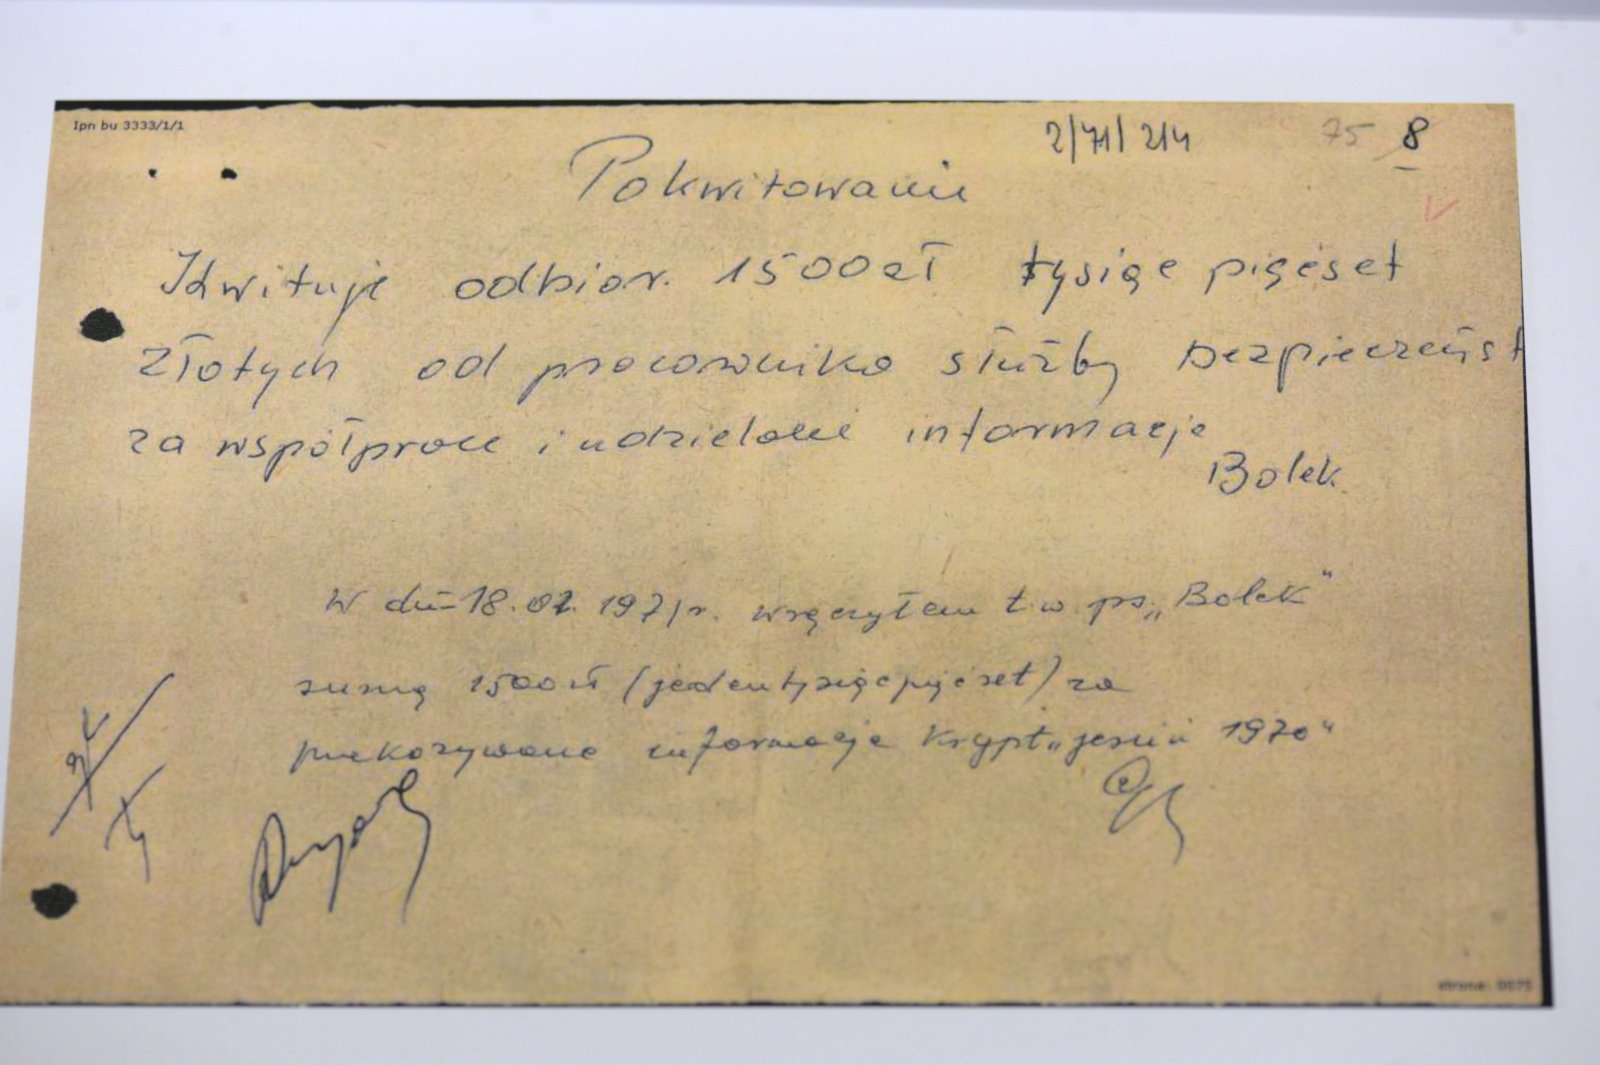 Ipn bu 3333/1/1
2/71/214 75 8
Pokwitowanie
Kwituje odbior. 1500zł tysiąc pięćset
złotych od pracownika służby bezpieczeńst
za współprace i udzielanie informacje
Bolek
W dn- 18.01.1971r. wręczyłem t.w ps „Bolek"
sumę 1500zł (jedentysiącpięćset) za
przekazywane informacje krypt „jesień 1970"
strona: 0075